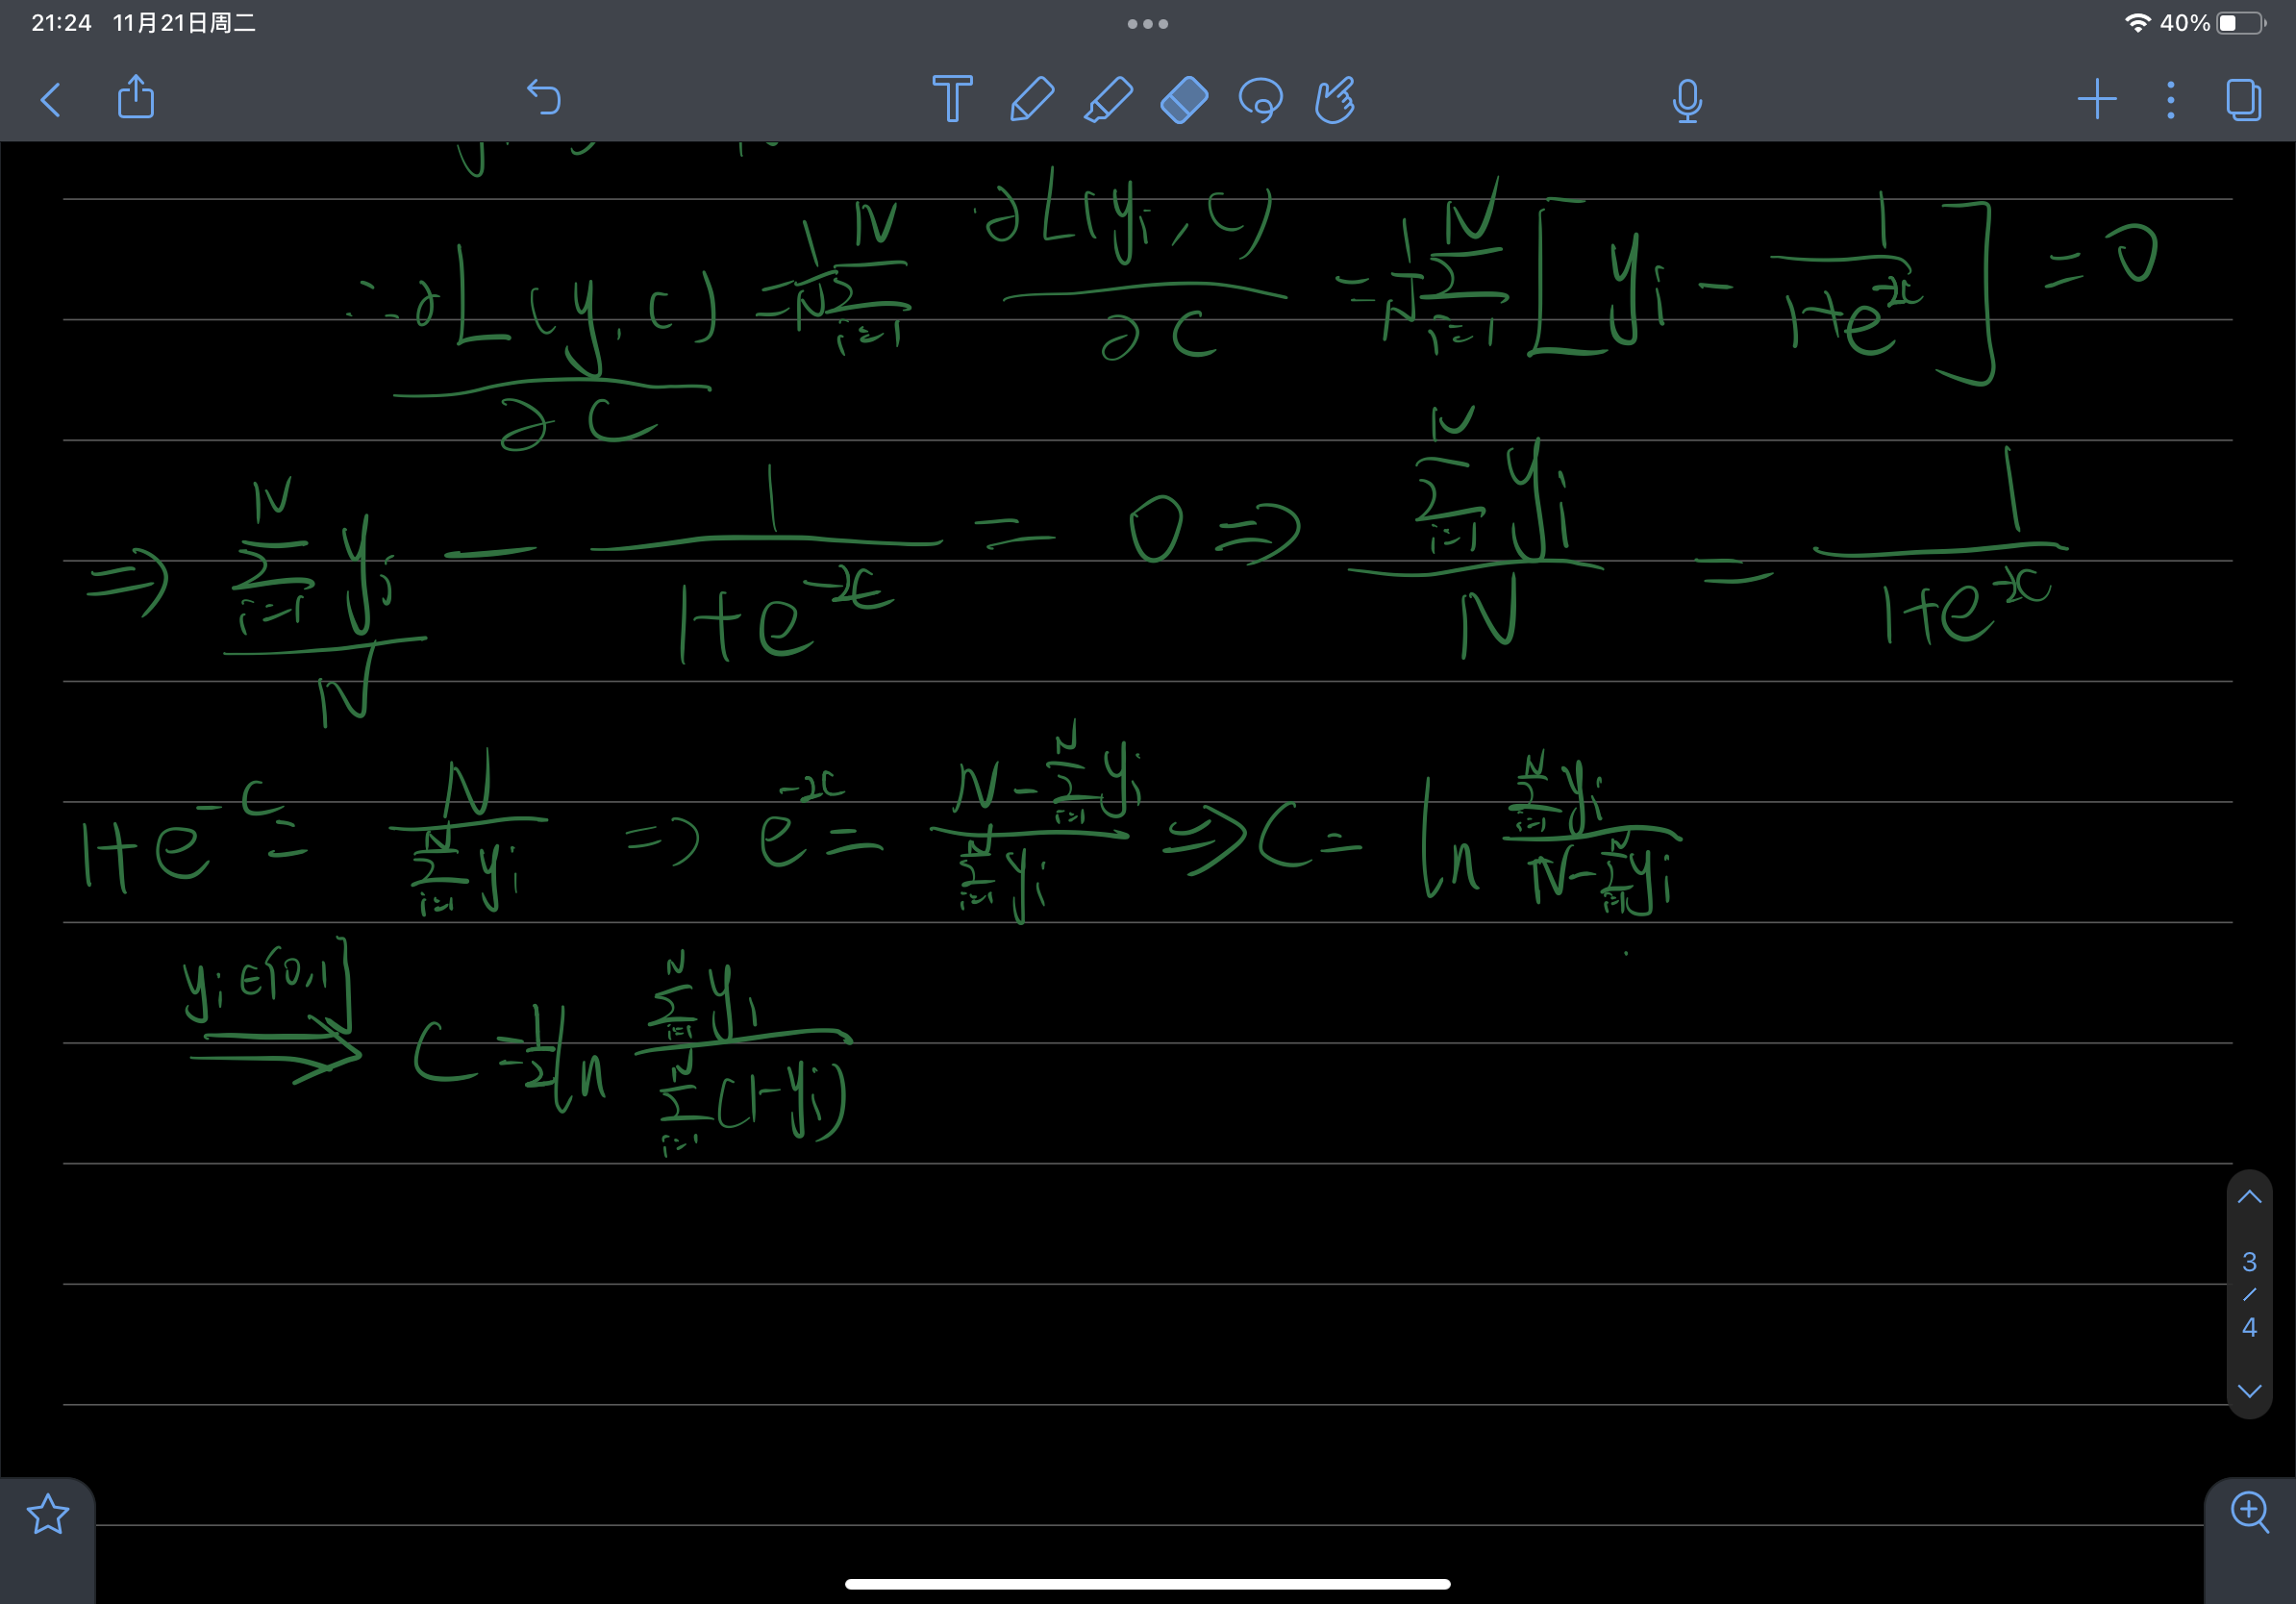 21:24 11月21日周二
40%
∴ ∂L(y, c)/∂c = 1/N ∑_{i=1}^{N} ∂L(y_i, c)/∂c = 1/N ∑_{i=1}^{N} [y_i - 1/(1+e^{-2c})] = 0
⇒ ∑_{i=1}^{N} y_i / N - 1/(1+e^{-2c}) = 0 ⇒ ∑_{i=1}^{N} y_i / N = 1/(1+e^{-2c})
1+e^{-c} = N / ∑_{i=1}^{N} y_i ⇒ e^{-2c} = (N - ∑_{i=1}^{N} y_i) / ∑_{i=1}^{N} y_i ⇒ C = ln ∑_{i=1}^{N} y_i / (N - ∑_{i=1}^{N} y_i)
y_i ∈ [0,1] ⇒ C = 1/2 ln ∑_{i=1}^{N} y_i / ∑_{i=1}^{N} (1-y_i)
3
/
4